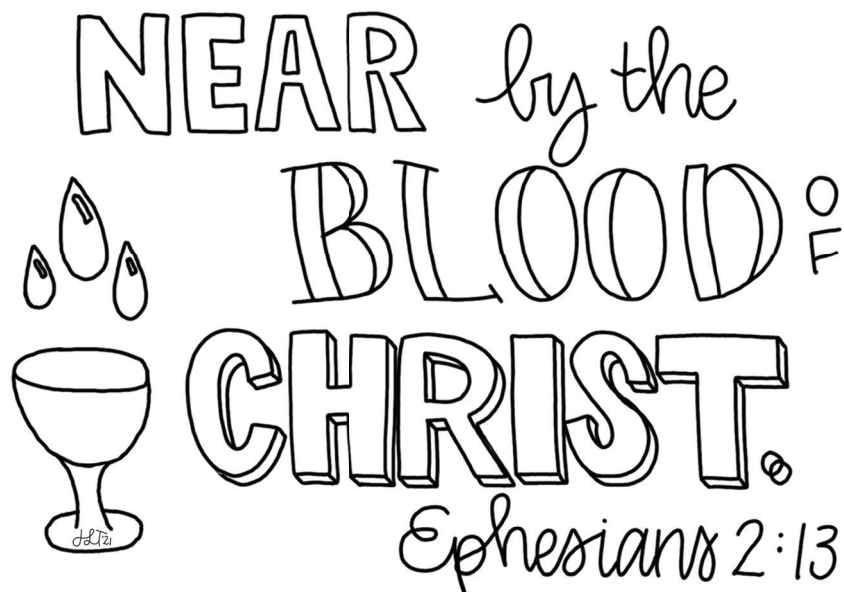 NEAR by the
BLOOD OF
CHRIST.
Ephesians 2:13
JLT'21